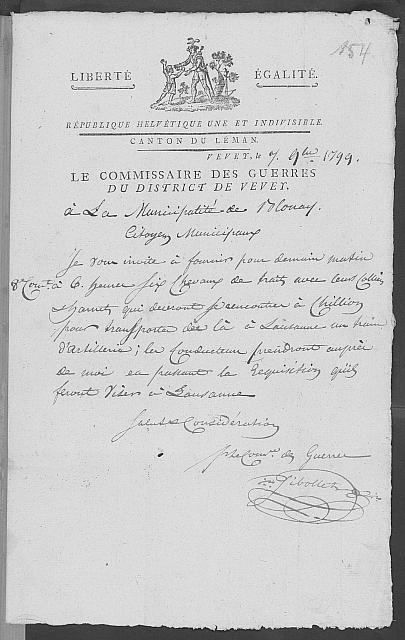 154
LIBERTÉ ÉGALITÉ.
RÉPUBLIQUE HELVÉTIQUE UNE ET INDIVISIBLE.
CANTON DU LÉMAN.
VEVEY, le 7. 9bre 1799.
LE COMMISSAIRE DES GUERRES
DU DISTRICT DE VEVEY.
à La Municipalité de Blonay.
Citoyens Municipaux
Je vous invite à fournir pour demain matin
8e Cout. à 6. heures six Chevaux de traits avec leurs Colliers
& harnets qui devront se rencontrer à Chillion
pour transporter dès là à Lausanne un train
d'artillerie; les Conducteurs prendront auprès
de moi en passant la Requisition qu'ils
feront Viser à Lausanne
Salut & Considération
Le Comre des Guerres